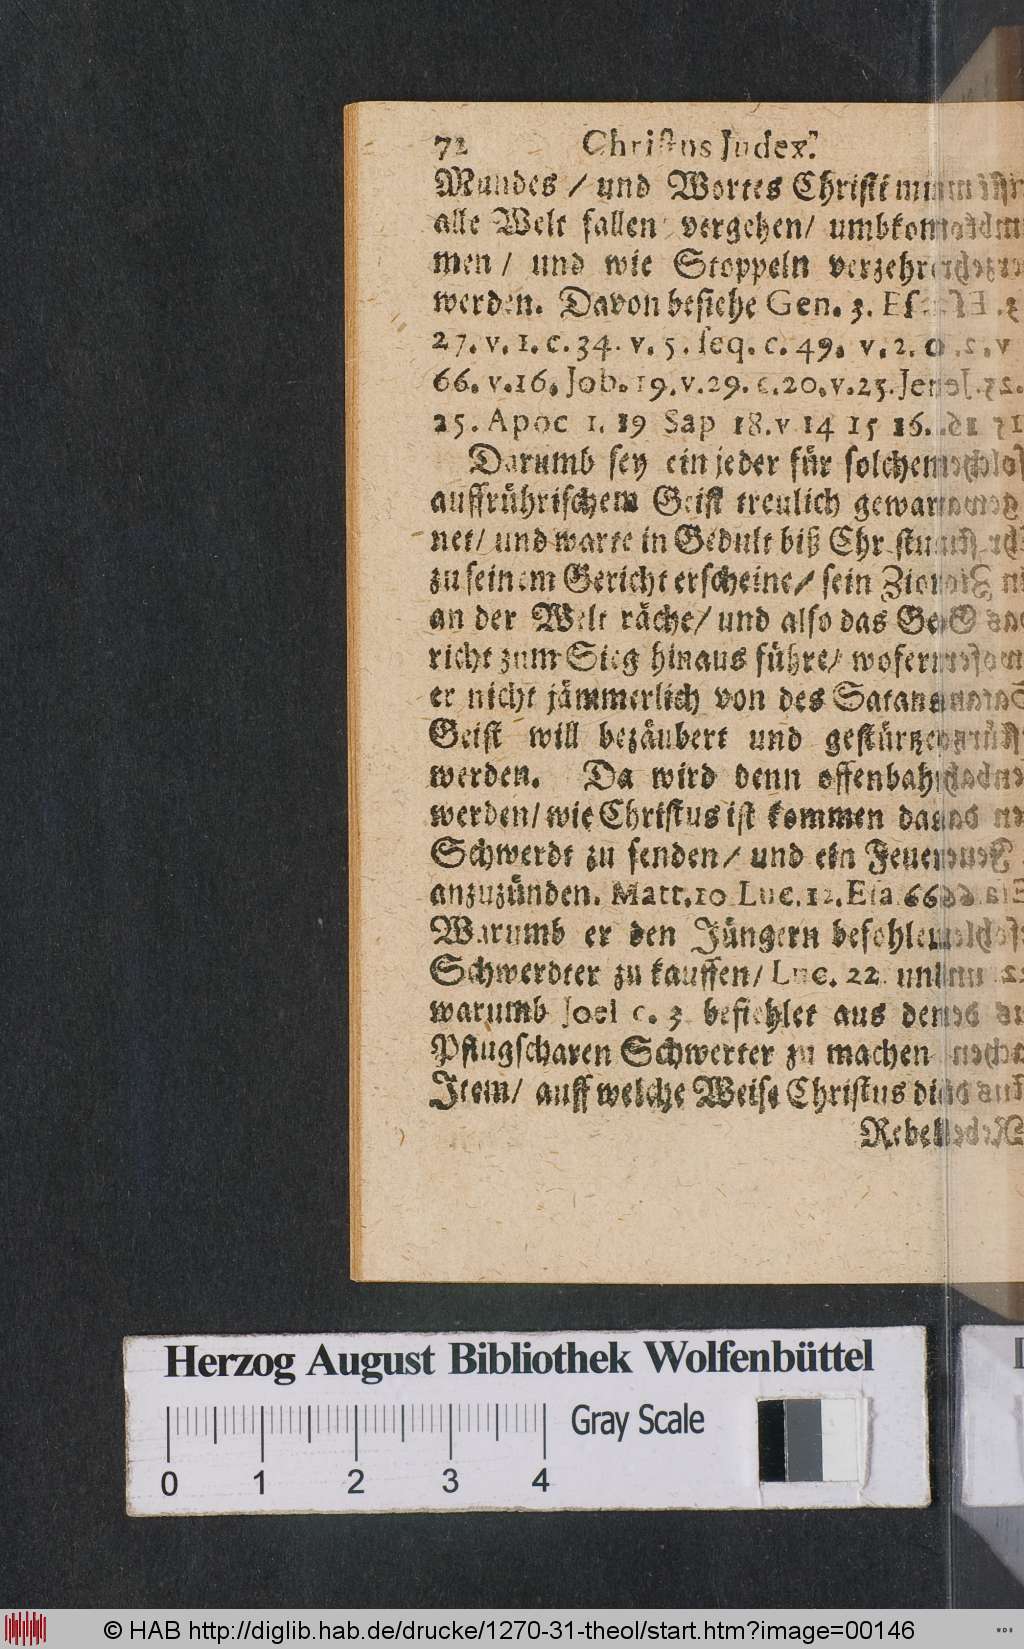 72 Christus Judex.
Mundes / und Wortes Christi
alle Welt fallen vergehen/ umbkom-
men / und wie Stoppeln verzehret
werden. Davon besiehe Gen. 3. Esa.
27. v. 1. c. 34. v. 5. seq. c. 49. v. 2.
66. v. 16. Job. 19. v. 29. c. 20. v. 25. Jer.
25. Apoc 1. 19 Sap 18. v 14 15 16.
Darumb sey ein jeder für solchem
auffrührischem Geist treulich gewar-
net/ und warte in Gedult biß Christus
zu seinem Gericht erscheine/ sein Zion
an der Welt räche/ und also das Ge-
richt zum Sieg hinaus führe/ wofern
er nicht jämmerlich von des Satans
Geist will bezäubert und gestürtzet
werden. Da wird denn offenbahr
werden/ wie Christus ist kommen das
Schwerdt zu senden/ und ein Feuer
anzuzünden. Matt. 10 Luc. 12. Esa 66
Warumb er den Jüngern befohlen
Schwerdter zu kauffen/ Luc. 22 und
warumb Joel c. 3 befiehlet aus den
Pflugscharen Schwerter zu machen
Item/ auff welche Weise Christus die
Rebel-
Herzog August Bibliothek Wolfenbüttel
Gray Scale
0 1 2 3 4
© HAB http://diglib.hab.de/drucke/1270-31-theol/start.htm?image=00146